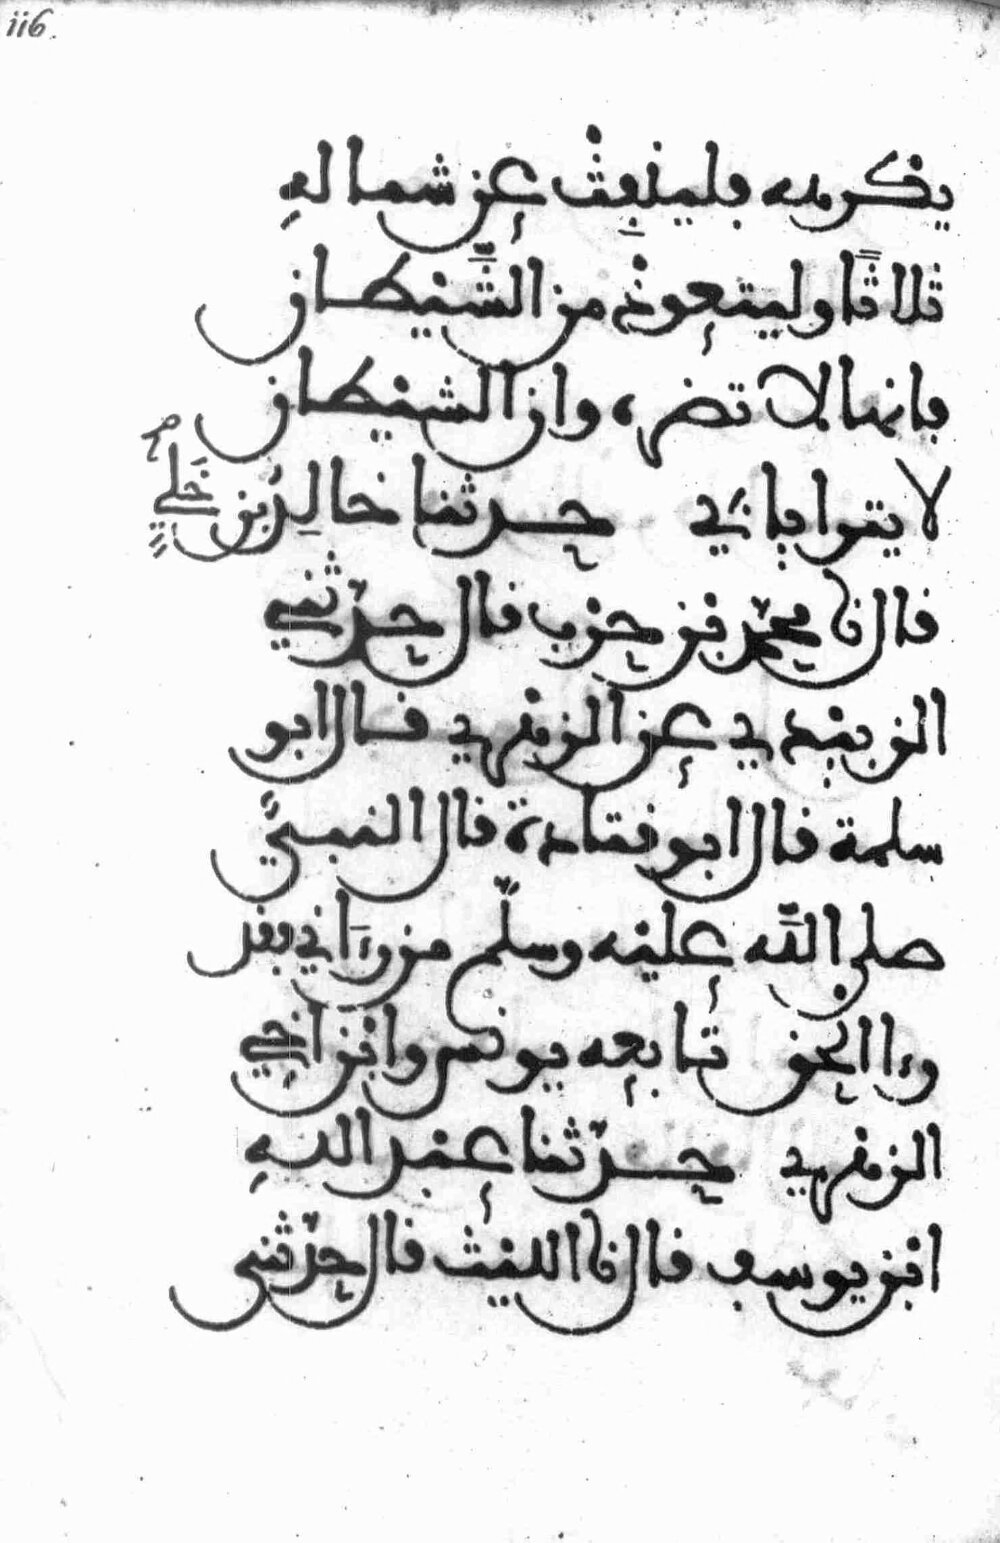 116.
يكرهه فلينفث عن شماله
ثلاثا وليتعوذ من الشيطان
فإنها لا تضره وان الشيطان
لا يتراياني حدثنا خالد بن خلي
قال نا محمد بن حرب قال حدثني
الزبيدي عن الزهري قال ابو
سلمة قال ابو قتادة قال النبي
صلى الله عليه وسلم من رءاني فقد
رءا الحق تابعه يونس وابن اخي
الزهري حدثنا عبد الله
ابن يوسف قال نا الليث قال حدثني